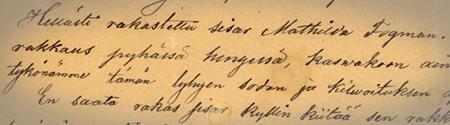 Hellästi rakastettu sisar Mathilda Fogman.
rakkaus pyhässä hengessä, kaswakoon
tykönämme tämän lyhyen sodan ja kilwoituksen
En saata rakas sisar kyllin kiittää sen